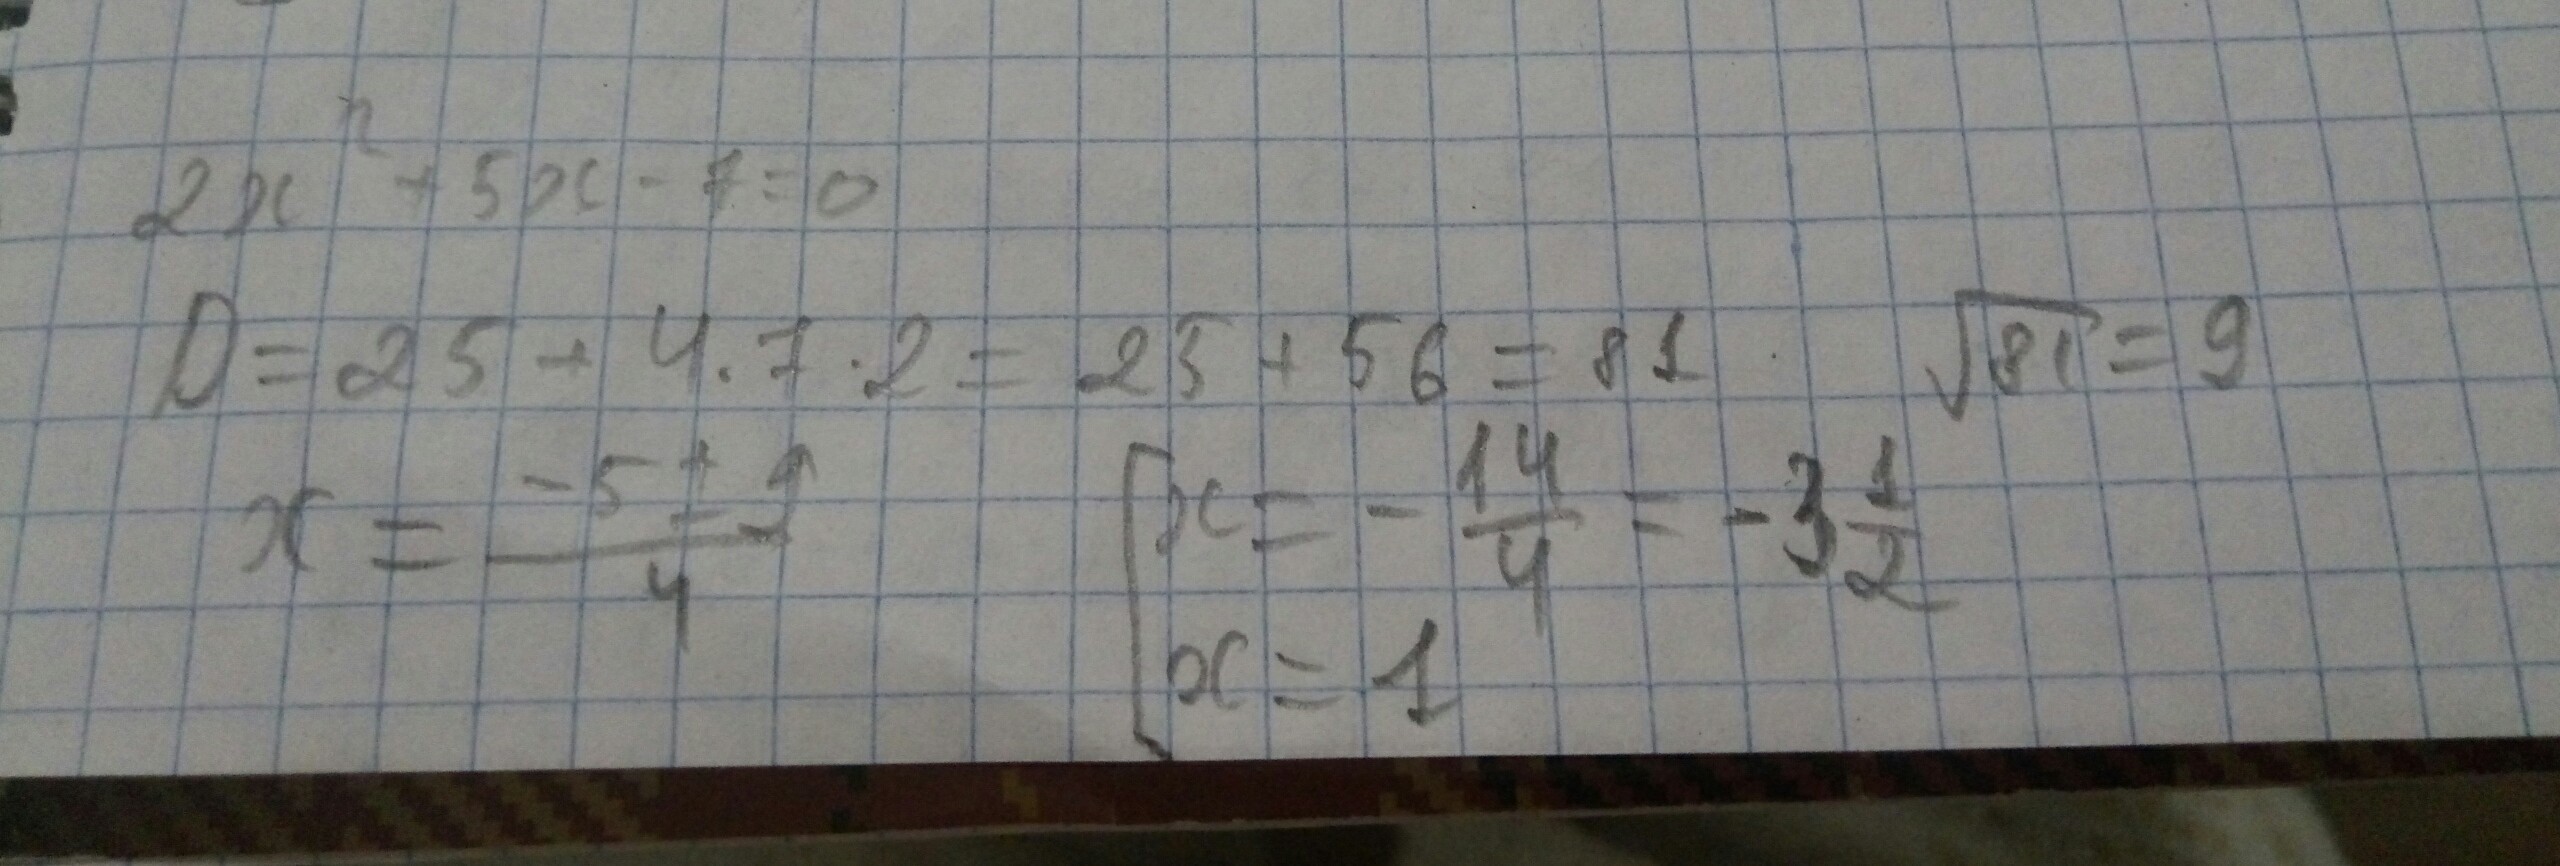 2x² + 5x - 7 = 0
D = 25 + 4 · 7 · 2 = 25 + 56 = 81 √81 = 9
x = (-5 ± 9)/4 [ x = -14/4 = -3 1/2
x = 1